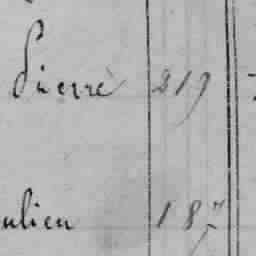 Pierre 219
ulien 187